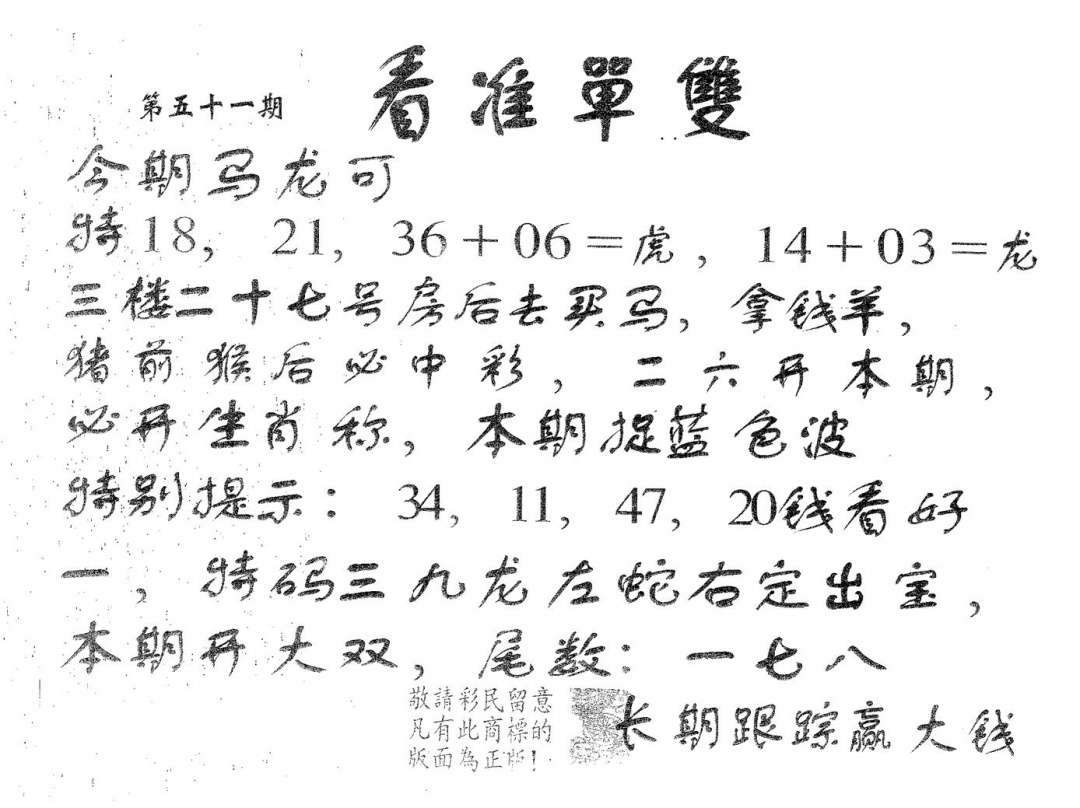 第五十一期
看准單雙
今期马龙可
特18, 21, 36+06=虎, 14+03=龙
三楼二十七号房后去买马, 拿钱羊,
猪前猴后必中彩, 二六开本期,
必开生肖称, 本期捉蓝色波
特别提示: 34, 11, 47, 20钱看好
一, 特码三九龙左蛇右定出宝,
本期开大双, 尾数: 一七八
敬請彩民留意
凡有此商標的
版面為正版!
长期跟踪赢大钱